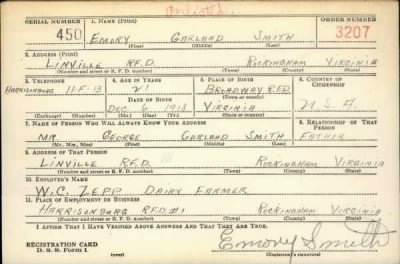 Enlisted
SERIAL NUMBER 1. NAME (Print) ORDER NUMBER
450 EMORY GARLAND SMITH 3207
(First) (Middle) (Last)
2. ADDRESS (Print)
LINVILLE R.F.D. ROCKINGHAM VIRGINIA
(Number and street or R. F. D. number) (Town) (County) (State)
3. TELEPHONE 4. AGE IN YEARS 5. PLACE OF BIRTH 6. COUNTRY OF CITIZENSHIP
HARRISONBURG 11-F-13 21 BROADWAY R.F.D.
DATE OF BIRTH (Town or county)
DEC. 6 1918 VIRGINIA U.S.A.
(Exchange) (Number) (Mo.) (Day) (Yr.) (State or country)
7. NAME OF PERSON WHO WILL ALWAYS KNOW YOUR ADDRESS 8. RELATIONSHIP OF THAT PERSON
MR. GEORGE GARLAND SMITH FATHER
(Mr., Mrs., Miss) (First) (Middle) (Last)
9. ADDRESS OF THAT PERSON
LINVILLE R.F.D. ROCKINGHAM VIRGINIA
(Number and street or R. F. D. number) (Town) (County) (State)
10. EMPLOYER'S NAME
W.C. ZEPP DAIRY FARMER
11. PLACE OF EMPLOYMENT OR BUSINESS
HARRISONBURG R.F.D. #1 ROCKINGHAM VIRGINIA
(Number and street or R. F. D. number) (Town) (County) (State)
I AFFIRM THAT I HAVE VERIFIED ABOVE ANSWERS AND THAT THEY ARE TRUE.
REGISTRATION CARD Emory Smith
D. S. S. Form 1 (over) (Registrant's signature)